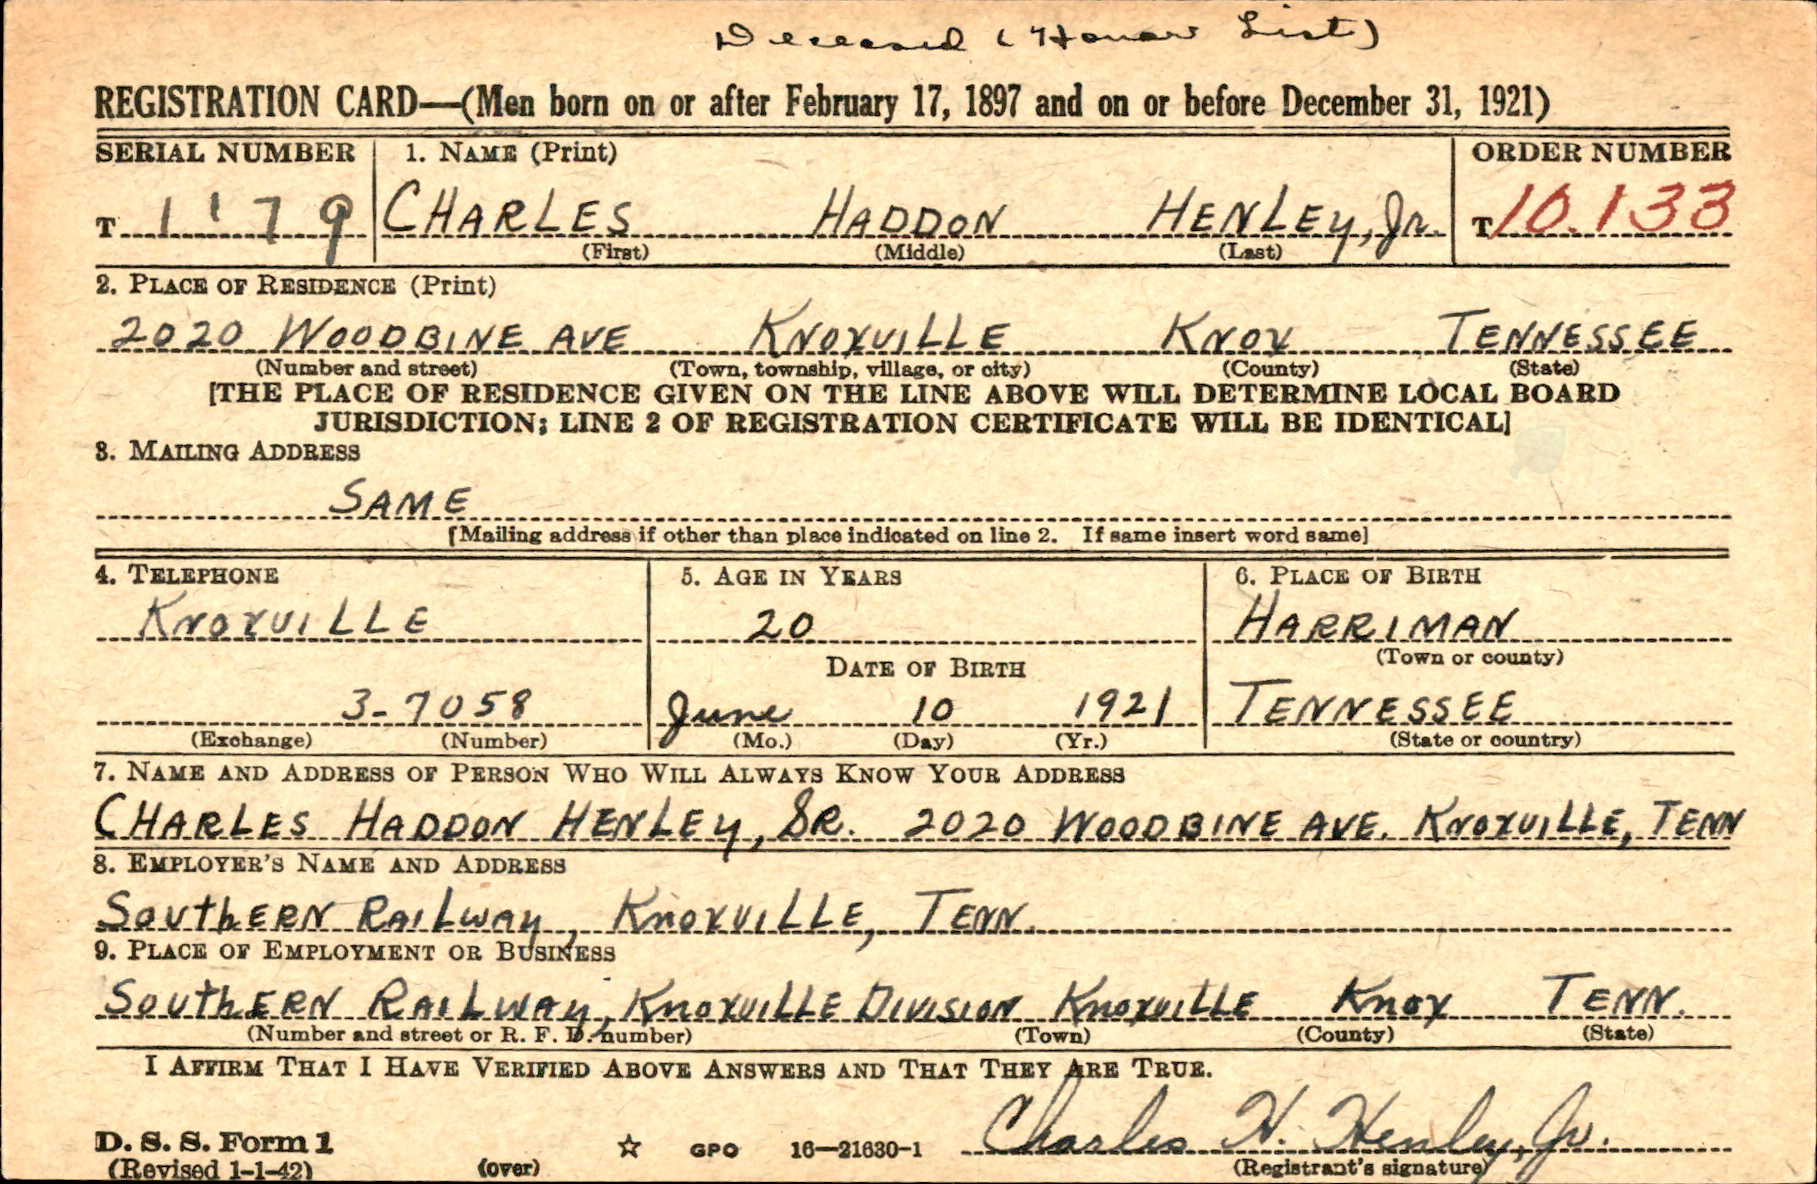 Deceased (Honor List)
REGISTRATION CARD—(Men born on or after February 17, 1897 and on or before December 31, 1921)
SERIAL NUMBER 1. NAME (Print) ORDER NUMBER
T 1'79 CHARLES HADDON HENLEY, Jr. T 10.133
(First) (Middle) (Last)
2. PLACE OF RESIDENCE (Print)
2020 WOODBINE AVE KNOXVILLE KNOX TENNESSEE
(Number and street) (Town, township, village, or city) (County) (State)
[THE PLACE OF RESIDENCE GIVEN ON THE LINE ABOVE WILL DETERMINE LOCAL BOARD
JURISDICTION; LINE 2 OF REGISTRATION CERTIFICATE WILL BE IDENTICAL]
3. MAILING ADDRESS
SAME
[Mailing address if other than place indicated on line 2. If same insert word same]
4. TELEPHONE 5. AGE IN YEARS 6. PLACE OF BIRTH
KNOXVILLE 20 HARRIMAN
(Town or county)
DATE OF BIRTH
3-7058 June 10 1921 TENNESSEE
(Exchange) (Number) (Mo.) (Day) (Yr.) (State or country)
7. NAME AND ADDRESS OF PERSON WHO WILL ALWAYS KNOW YOUR ADDRESS
CHARLES HADDON HENLEY, SR. 2020 WOODBINE AVE. KNOXVILLE, TENN
8. EMPLOYER'S NAME AND ADDRESS
SOUTHERN RAILWAY, KNOXVILLE, TENN.
9. PLACE OF EMPLOYMENT OR BUSINESS
SOUTHERN RAILWAY, KNOXVILLE DIVISION KNOXVILLE KNOX TENN.
(Number and street or R. F. D. number) (Town) (County) (State)
I AFFIRM THAT I HAVE VERIFIED ABOVE ANSWERS AND THAT THEY ARE TRUE.
Charles H. Henley, Jr.
D. S. S. Form 1
(Revised 1-1-42) (over) ☆ GPO 16—21630-1 (Registrant's signature)